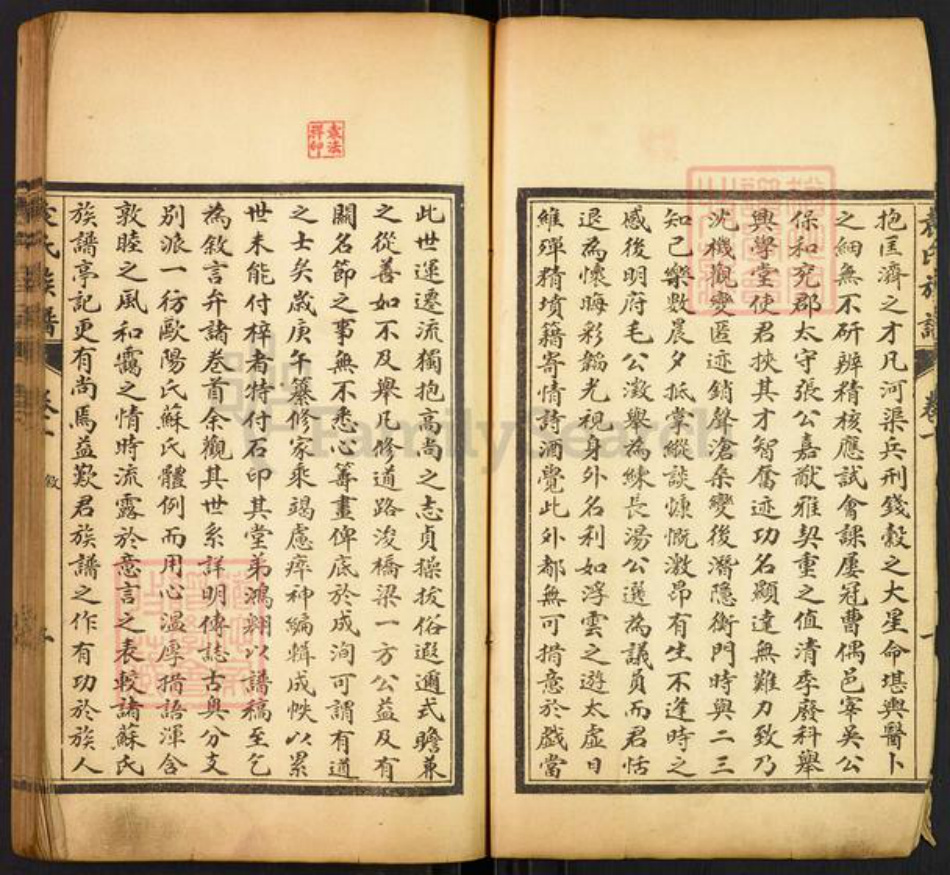 袁氏族譜 卷一
抱匡濟之才凡河渠兵刑錢穀之大星命堪輿醫卜
之細無不研辨精核應試會課屢冠曹偶邑宰吳公
保和兗郡太守張公嘉猷雅契重之值清季廢科舉
興學堂使君挾其才智奮迹功名顯達無難力致乃
沈機觀變匿迹銷聲滄桑變後潛隱衡門時與二三
知己樂數晨夕抵掌縱談慷慨激昂有生不逢時之
感後明府毛公澂舉為練長湯公選為議員而君恬
退為懷晦彩韜光視身外名利如浮雲之遊太虛日
維殫精墳籍寄情詩酒覺此外都無可措意於戲當
此世運遷流獨抱高尚之志貞操拔俗遐邇式瞻兼
之從善如不及舉凡修道路浚橋梁一方公益及有
關名節之事無不悉心籌畫俾底於成洵可謂有道
之士矣歲庚午纂修家乘竭慮瘁神編輯成帙以累
世未能付梓者特付石印其堂弟鴻翱以譜稿至乞
為敘言弁諸卷首余觀其世系詳明傳誌古奧分支
別派一彷歐陽氏蘇氏體例而用心溫厚措語渾含
敦睦之風和靄之情時流露於意言之表較諸蘇氏
族譜亭記更有尚焉益歎君族譜之作有功於族人
氏族譜 卷一 敘
袁法
祥印
FamilySearch